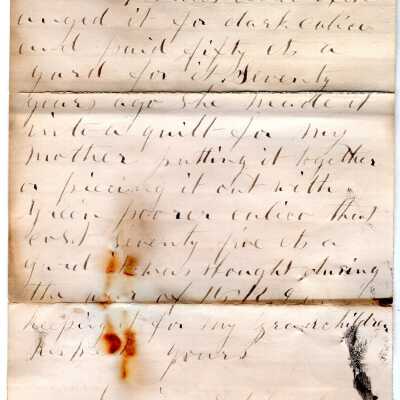 anged it for dark calico
and paid fifty cts a
yard for it. Seventy
years ago she made it
into a quilt for my
mother putting it together
a piecing it out with
Green poorer calico that
cost seventy five cts a
yard it was thought during
the war of
keeping it for my grandchildren
Respect yours